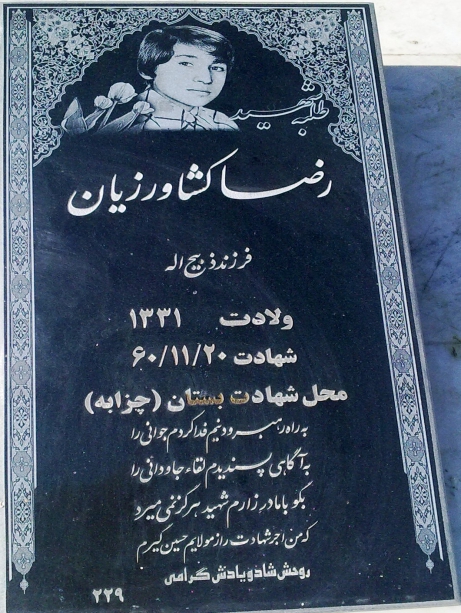 طلبه شهید
رضا کشاورزیان
فرزند ذبیح اله
ولادت ۱۳۳۱
شهادت ۶۰/۱۱/۲۰
محل شهادت بستان (چزابه)
به راه رهبر و دینم فدا کردم جوانی را
به آگاهی پسندیدم لقاء جاودانی را
بگو با مادر زارم شهید هرگز نمی میرد
که من اجر شهادت را ز مولایم حسین گیرم
روحش شاد و یادش گرامی
۲۲۹